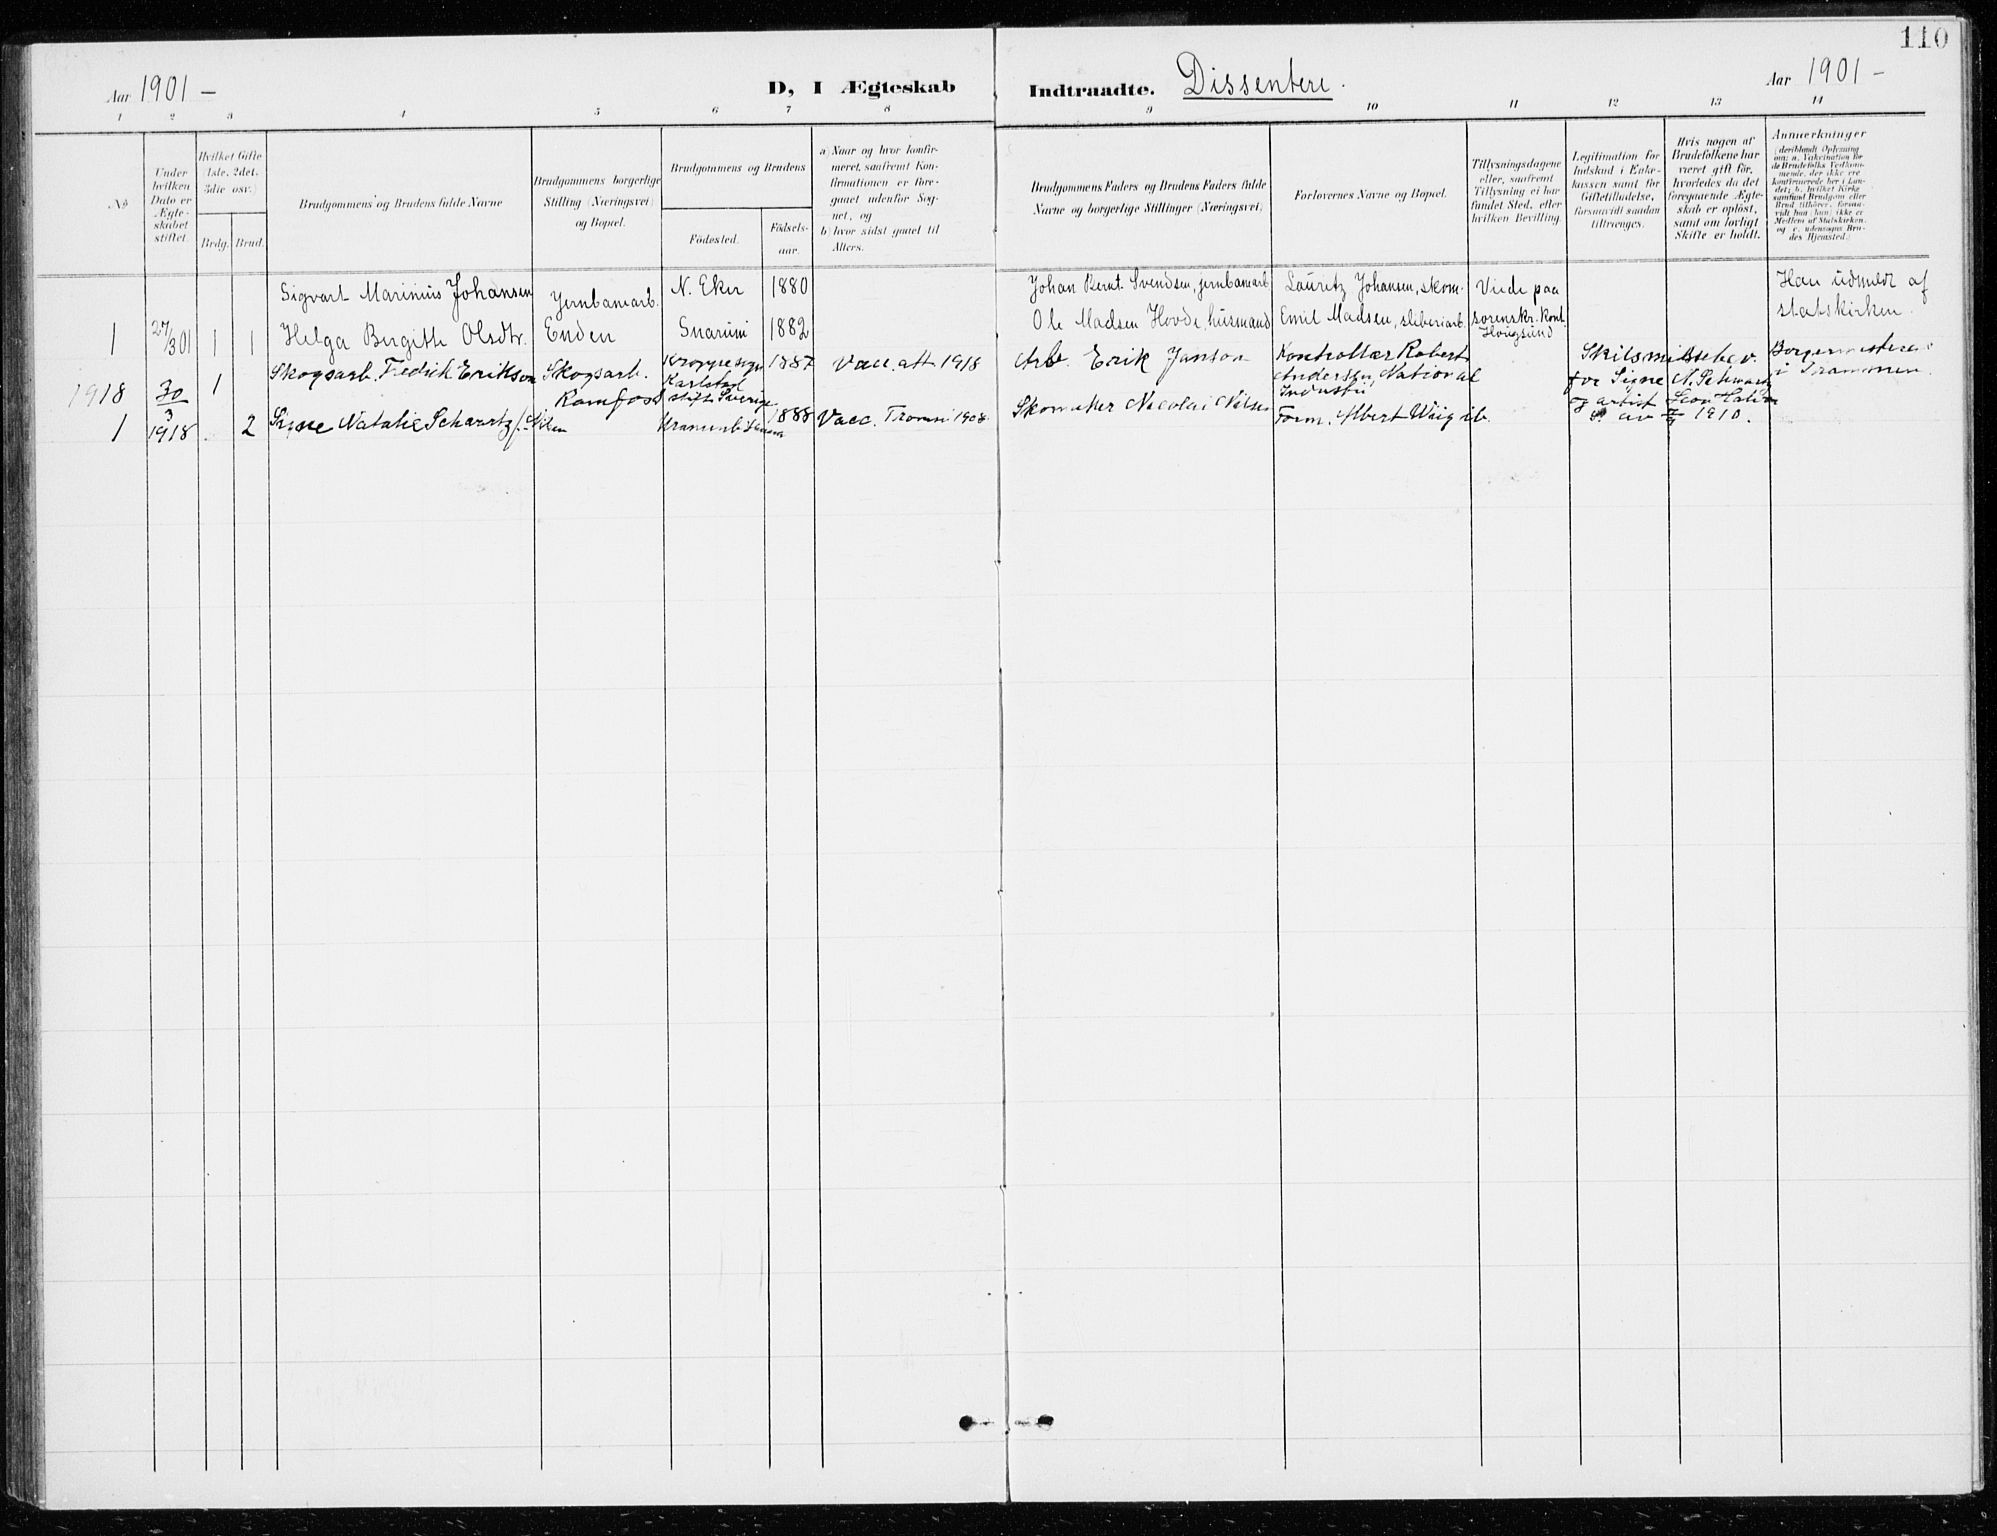 110
Aar 1901 –
D, I Ægteskab Indtraadte. Dissentere.
Aar 1901 –
1 2 3 4 5 6 7 8 9 10 11 12 13 14
No
Under hvilken Dato er Ægteskabet stiftet.
Hvilket Gifte (1ste, 2det, 3die osv.)
Brdg. Brud.
Brudgommens og Brudens fulde Navne
Brudgommens borgerlige Stilling (Næringsvei) og Bopæl.
Brudgommens og Brudens
Fødested. Fødselsaar.
a) Naar og hvor konfirmeret, saafremt Konfirmationen er foregaaet udenfor Sognet, og
b) hvor sidst gaaet til Alters.
Brudgommens Faders og Brudens Faders fulde Navne og borgerlige Stillinger (Næringsvei)
Forlovernes Navne og Bopæl.
Tillysningsdagene eller, saafremt Tillysning ei har fundet Sted, efter hvilken Bevilling.
Legitimation for Indskud i Enkekassen samt for Giftetilladelse, forsaavidt saadan tiltrænges.
Hvis nogen af Brudefolkene har været gift før, hvorledes da det foregaaende Ægteskab er opløst, samt om lovligt Skifte er holdt.
Anmerkninger (deriblandt Oplysning om: a. Vakcination for de Brudefolks Vedkommende, der ikke ere konfirmerede her i Landet; b. hvilket Kirkesamfund Brudgom eller Brud tilhører, forsaavidt han (hun) ikke er Medlem af Statskirken, og c. udensogns Brudes Hjemsted.)
Sigvart Marinius Johansen Jernbanearb. N. Eker 1880 Johan Bernt Svendsen, jernbanearb Lauritz Johansen, skom. Viede paa Han udmeldt af
1 27/3 01 1 1 Helga Birgitte Olsdtr. Enden Snarum 1882 Ole Madsen Hovde, husmand Emil Madsen, sliberiarb. sorenskr. kont. Hougsund statskirken.
1918 30 1 Skogsarb. Fredrik Erikson Skogsarb. Ramfoss Karlstad stift Sverige 1887 Vacc. att 1918 Arb. Erik Janson Kontrollør Robert Andersen, National Industri Skilsmisse for Signe N. Schwartz Borgermesteren i Drammen.
1 3 1918 2 Signe Natalie Schwartz f. Nilsen 1888 Vacc. Tromsø 1908 Skomaker Nicolai Nilsen Form. Albert Wiig ib. og artist Leon av 1910.